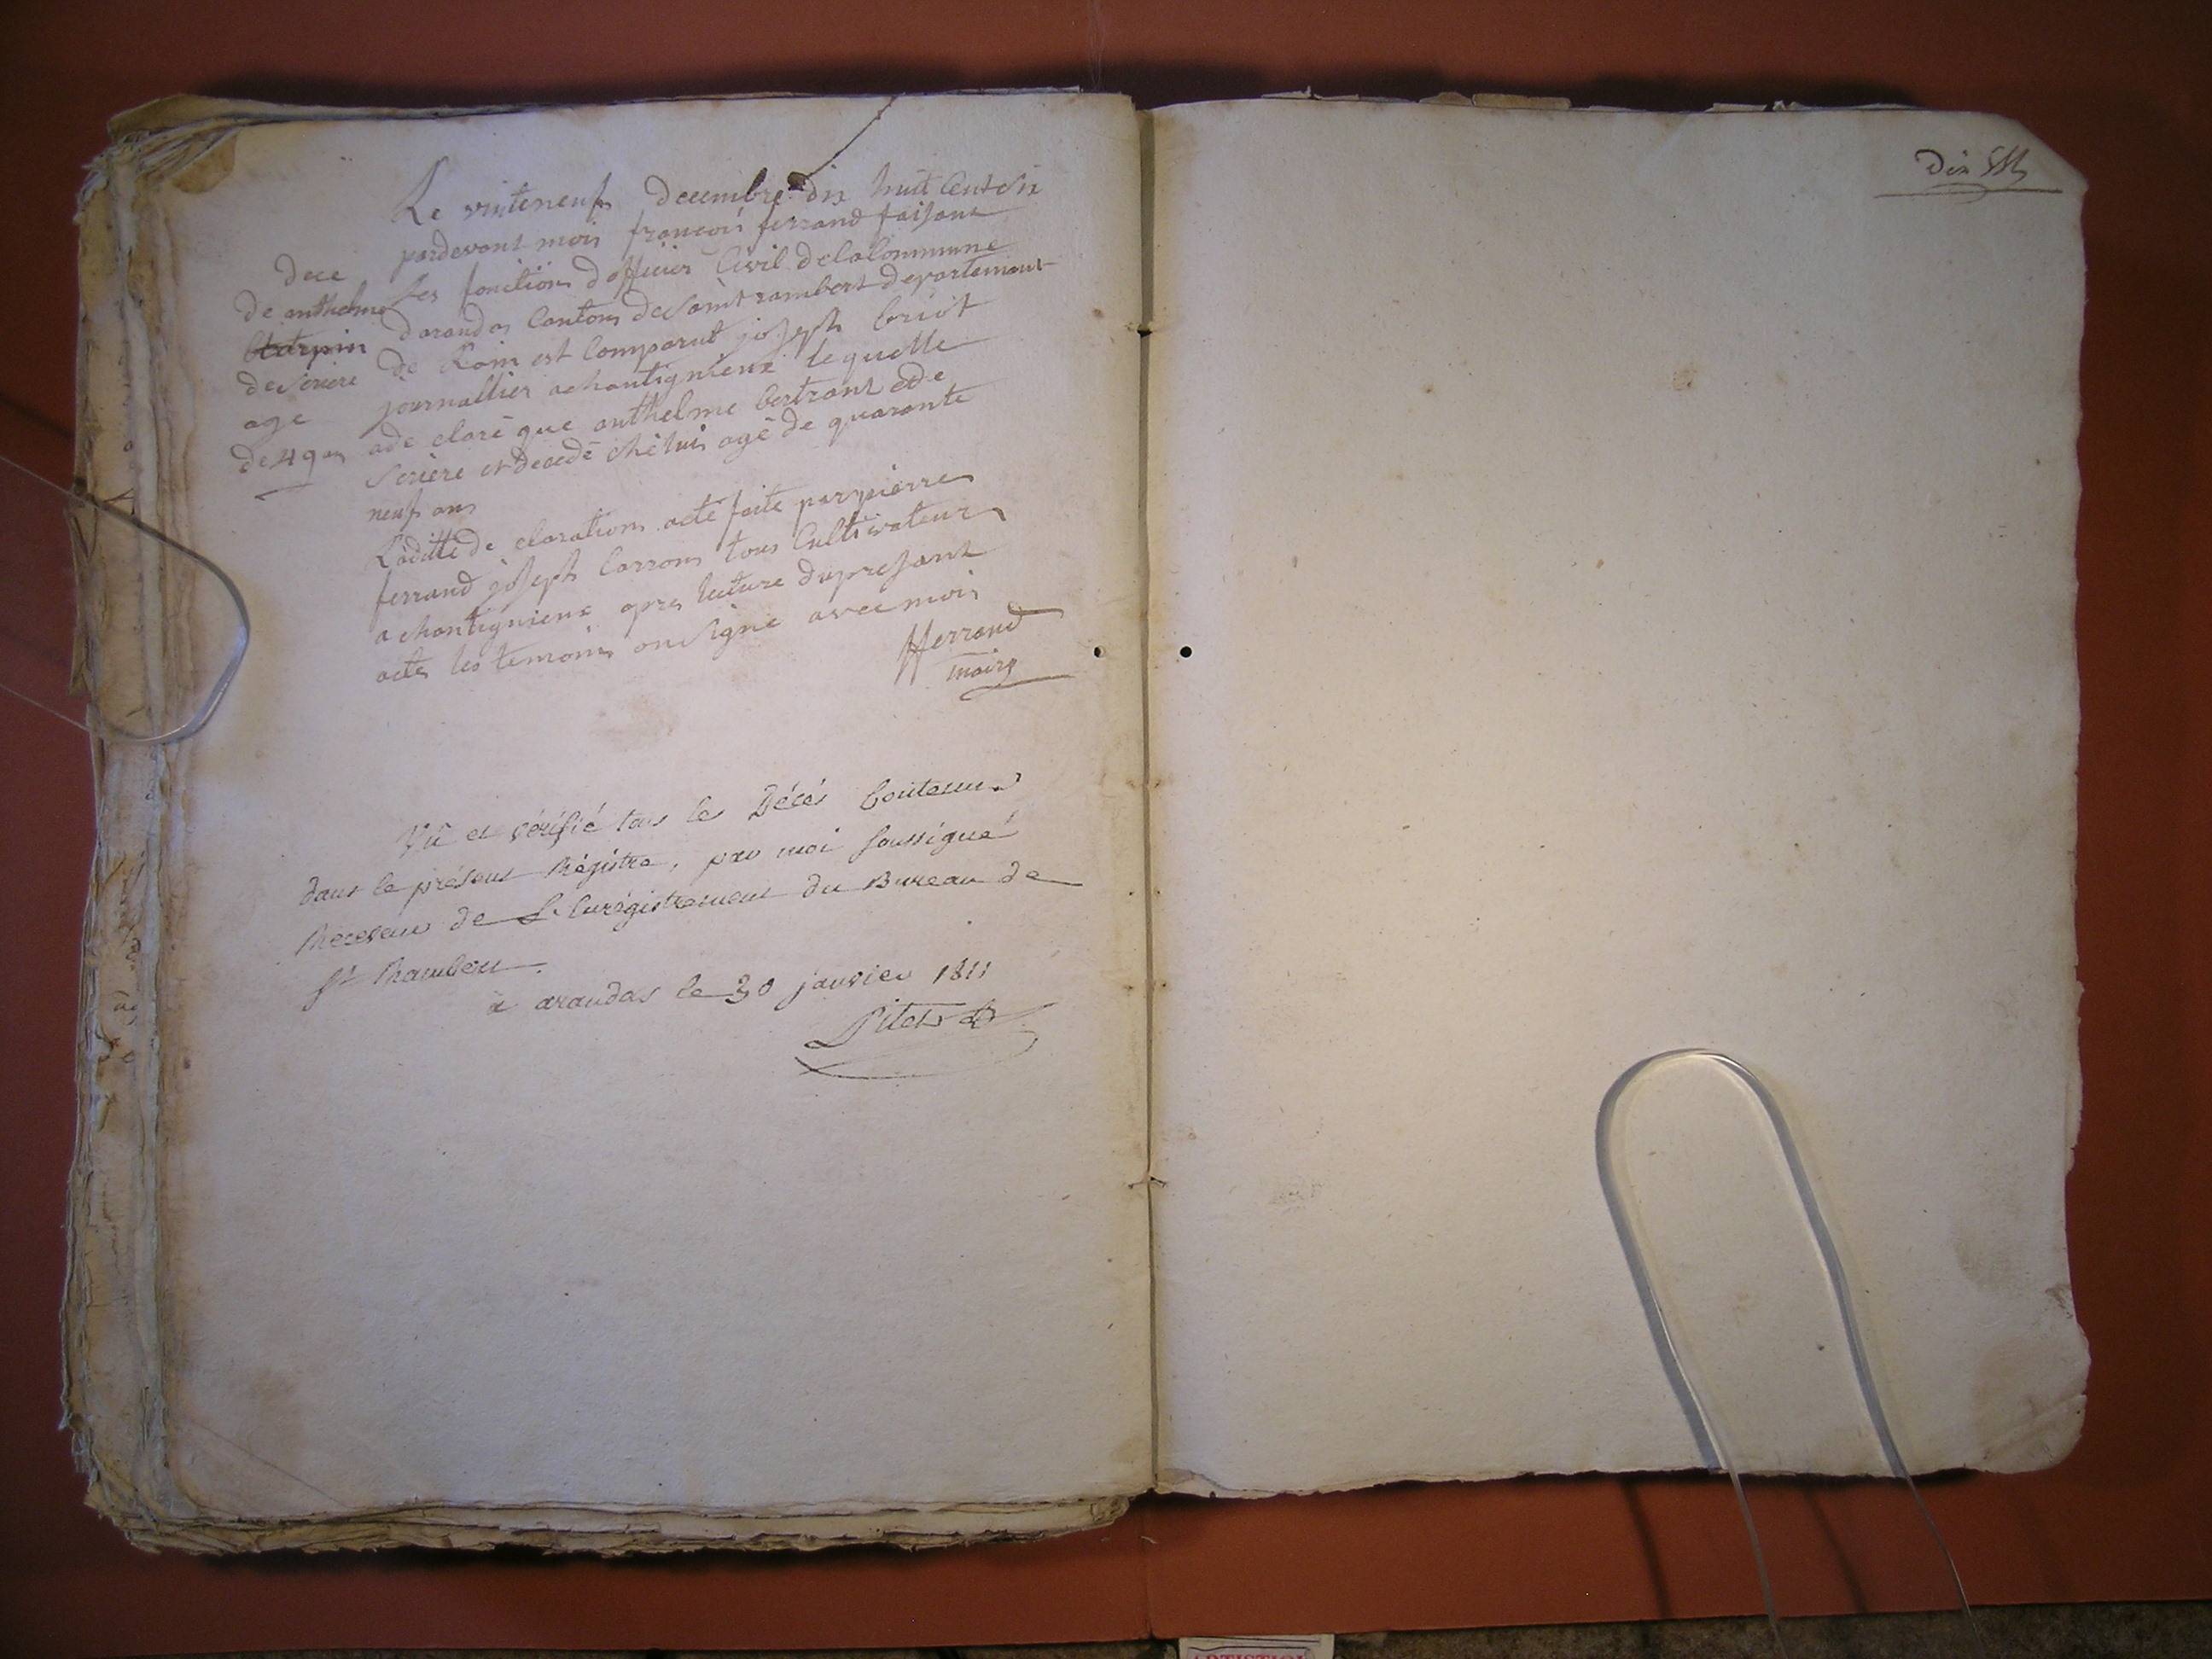 Le vinteneufs decembre dix huit Cent dix
pardevant mois françois ferrand faisant
les fonctions dofficier Civil delaCommune
darandas Cantons deSaint rambert departemant
de Lain est Comparut joseph briot
journallier achantignieux lequelle
ade claré que anthelme bertrant de
Seriere et decedé ché luis agé de quarante
neufs ans
Laditte de clarations acté faite parpierre
ferrand joseph Carrons tous Cultivateurs
achantignieux apres lecture dupresant
acte les temoins on Signé avec mois
fferrand
maire
dece
de anthelme
deSeriere
age
de 49 ans
Vû et vérifié tous les Décés Contenus
dans le présent Régistre, par moi Soussigné
Receveur de L'Enrégistrement du Bureau de
St Rambert.
à arandas le 30 janvier 1811
dix